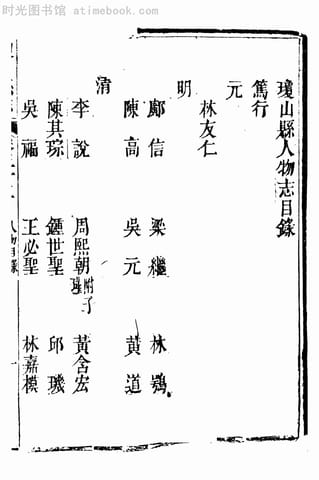 时光图书馆 atimebook.com
瓊山縣人物志目錄
篤行
元
林友仁
明
鄺信 梁繼 林鶚
陳高 吳元 黃道
清
李說 周熙朝附子 黃含宏
陳其琮 鍾世聖 邱璣
吳福 王必聖 林嘉模
人物目錄 一